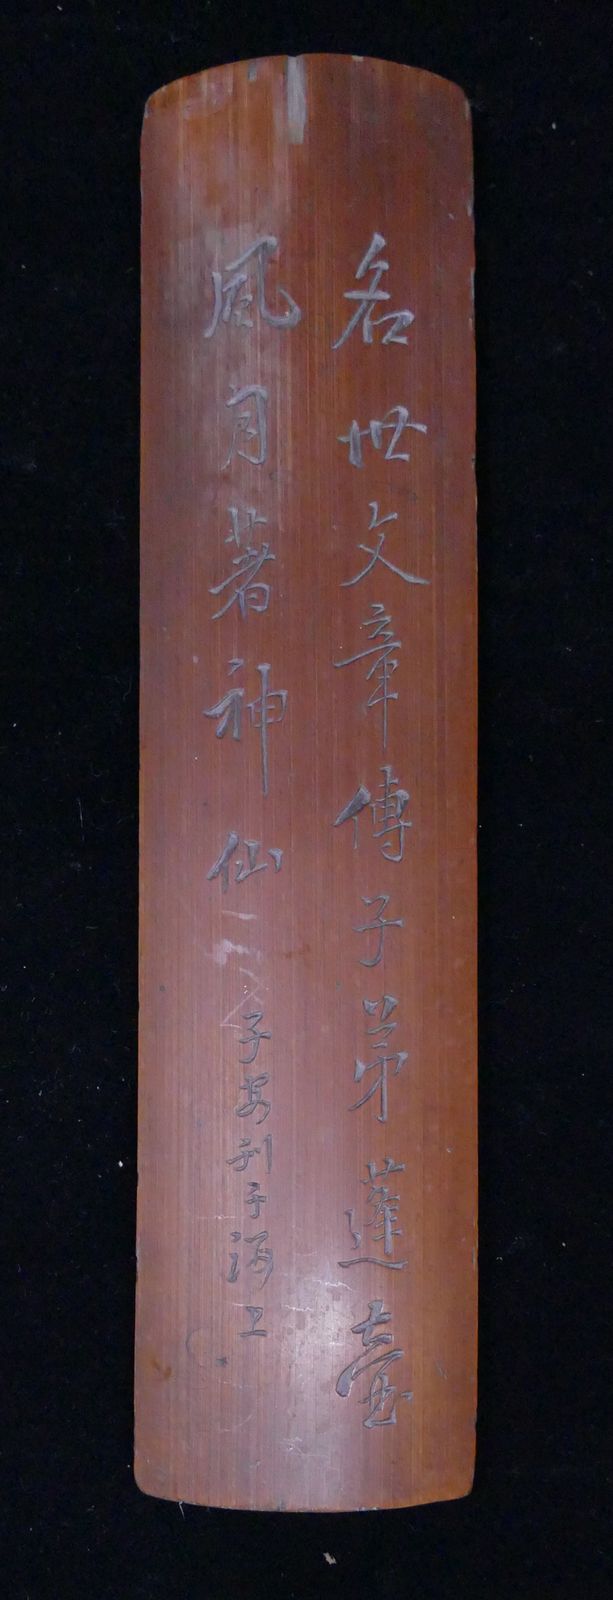 名世文章傳子弟蓬壺
風月著神仙
子安刊于海上